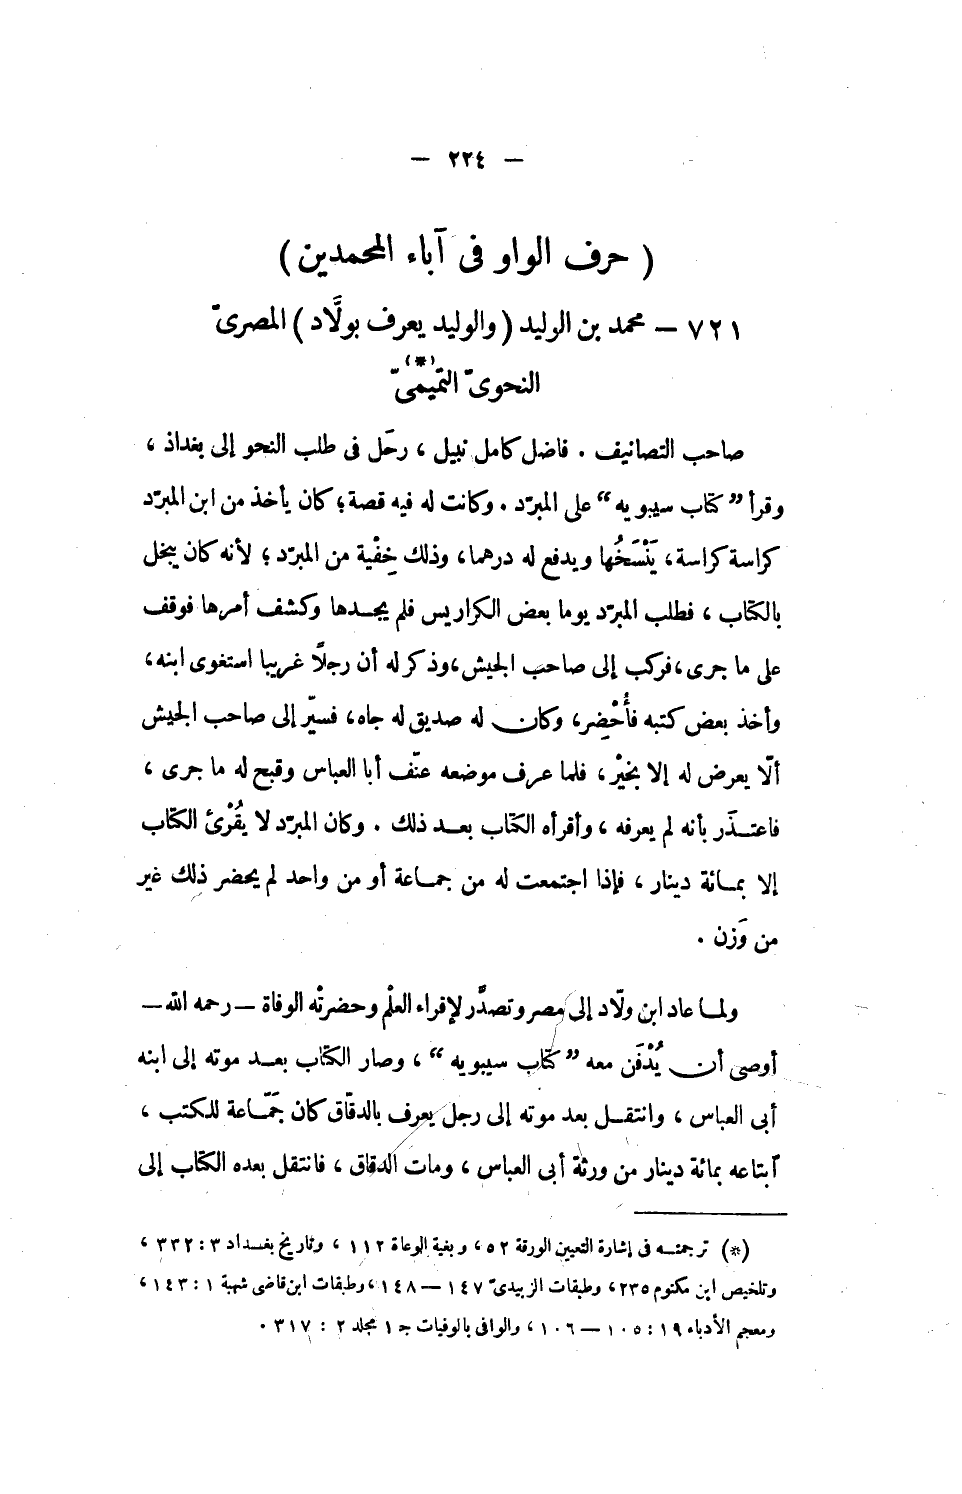 — ٢٢٤ —
( حرف الواو فى آباء المحمدين )
٧٢١ — محمد بن الوليد ( والوليد يعرف بولَّاد ) المصرىّ
النحوىّ التميمىّ (*)
صاحب التصانيف . فاضل كامل نبيل ، رحَل فى طلب النحو إلى بغداذ ،
وقرأ ” كتاب سيبويه “ على المبرّد . وكانت له فيه قصة ؛ كان يأخذ من ابن المبرّد
كراسة كراسة ، يَنْسَخُها ويدفع له درهما ، وذلك خِفْية من المبرّد ؛ لأنه كان يبخل
بالكتاب ، فطلب المبرّد يوما بعض الكراريس فلم يجدها وكشف أمرها فوقف
على ما جرى ، فركب إلى صاحب الجيش ، وذكر له أن رجلًا غريبا استغوى ابنه ،
وأخذ بعض كتبه فأُحْضِر ، وكان له صديق له جاه ، فسيّر إلى صاحب الجيش
ألّا يعرض له إلا بخيْر ، فلما عرف موضعه عنّف أبا العباس وقبح له ما جرى ،
فاعتذَر بأنه لم يعرفه ، وأقرأه الكتاب بعد ذلك . وكان المبرّد لا يُقْرئ الكتاب
إلا بمائة دينار ، فإذا اجتمعت له من جماعة أو من واحد لم يحضر ذلك غير
من وَزن .
ولما عاد ابن ولّاد إلى مصر وتصدَّر لإفراء العلْم وحضرتْه الوفاة — رحمه الله —
أوصى أن يُدْفَن معه ” كتاب سيبويه “ ، وصار الكتاب بعد موته إلى ابنه
أبى العباس ، وانتقل بعد موته إلى رجل يعرف بالدقّاق كان جَمّاعة للكتب ،
ابتاعه بمائة دينار من ورثة أبى العباس ، ومات الدقاق ، فانتقل بعده الكتاب إلى
(*) ترجمته فى إشارة التعيين الورقة ٥٢ ، وبغية الوعاة ١١٢ ، وتاريخ بغداد ٣ : ٣٣٢ ،
وتلخيص ابن مكتوم ٢٣٥ ، وطبقات الزبيدىّ ١٤٧ — ١٤٨ ، وطبقات ابن قاضى شهبة ١ : ١٤٣ ،
ومعجم الأدباء ١٩ : ١٠٥ — ١٠٦ ، والوافى بالوفيات ج ١ مجلد ٢ : ٣١٧ .